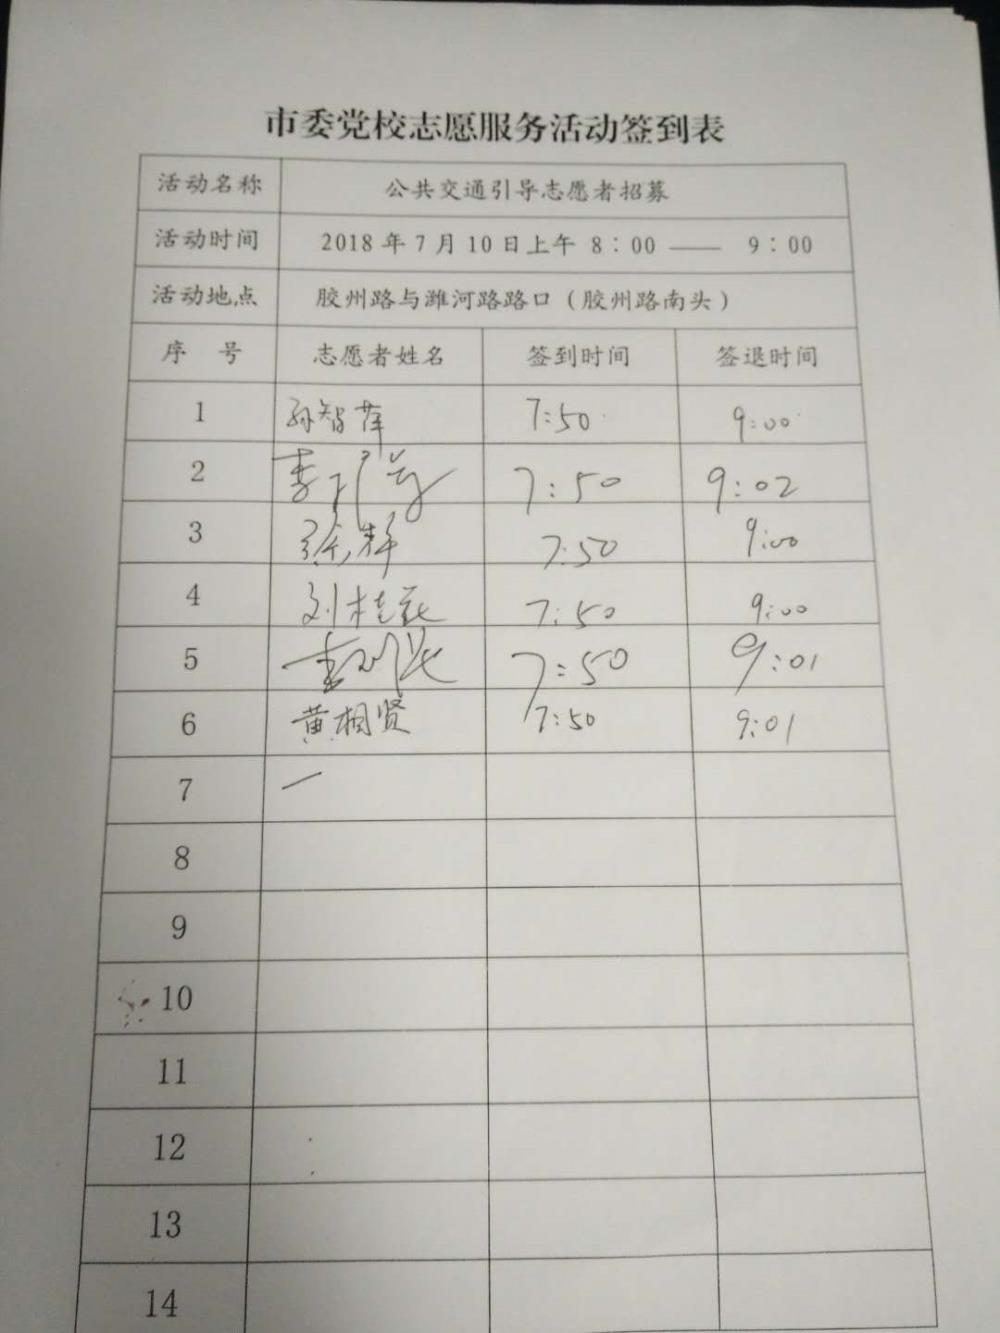 市委党校志愿服务活动签到表
活动名称 公共交通引导志愿者招募
活动时间 2018年7月10日上午 8：00 —— 9：00
活动地点 胶州路与潍河路路口（胶州路南头）
序 号 志愿者姓名 签到时间 签退时间
1 孙智萍 7:50 9:00
2 李 7:50 9:02
3 7:50 9:00
4 刘桂花 7:50 9:00
5 7:50 9:01
6 黄相贤 7:50 9:01
7 一
8
9
10
11
12
13
14